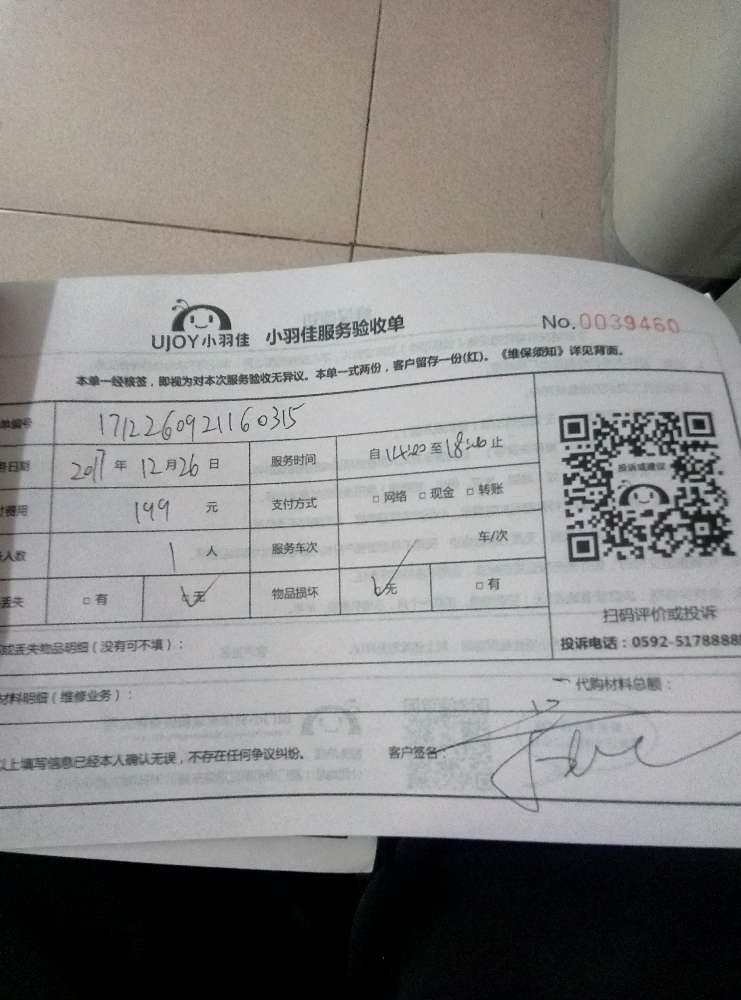 UJOY小羽佳 小羽佳服务验收单 No.0039460
本单一经核签，即视为对本次服务验收无异议。本单一式两份，客户留存一份(红)。《维保须知》详见背面。
单编号 1712260921160315
日期 2017年12月26日 服务时间 自14:00至18:00止
费用 199元 支付方式 □网络 □现金 □转账
人数 1人 服务车次 车/次
丢失 □有 □无 物品损坏 □无 □有
投诉或建议
扫码评价或投诉
投诉电话：0592-5178888
或丢失物品明细（没有可不填）：
材料明细（维修业务）： 代购材料总额：
以上填写信息已经本人确认无误，不存在任何争议纠纷。 客户签名：